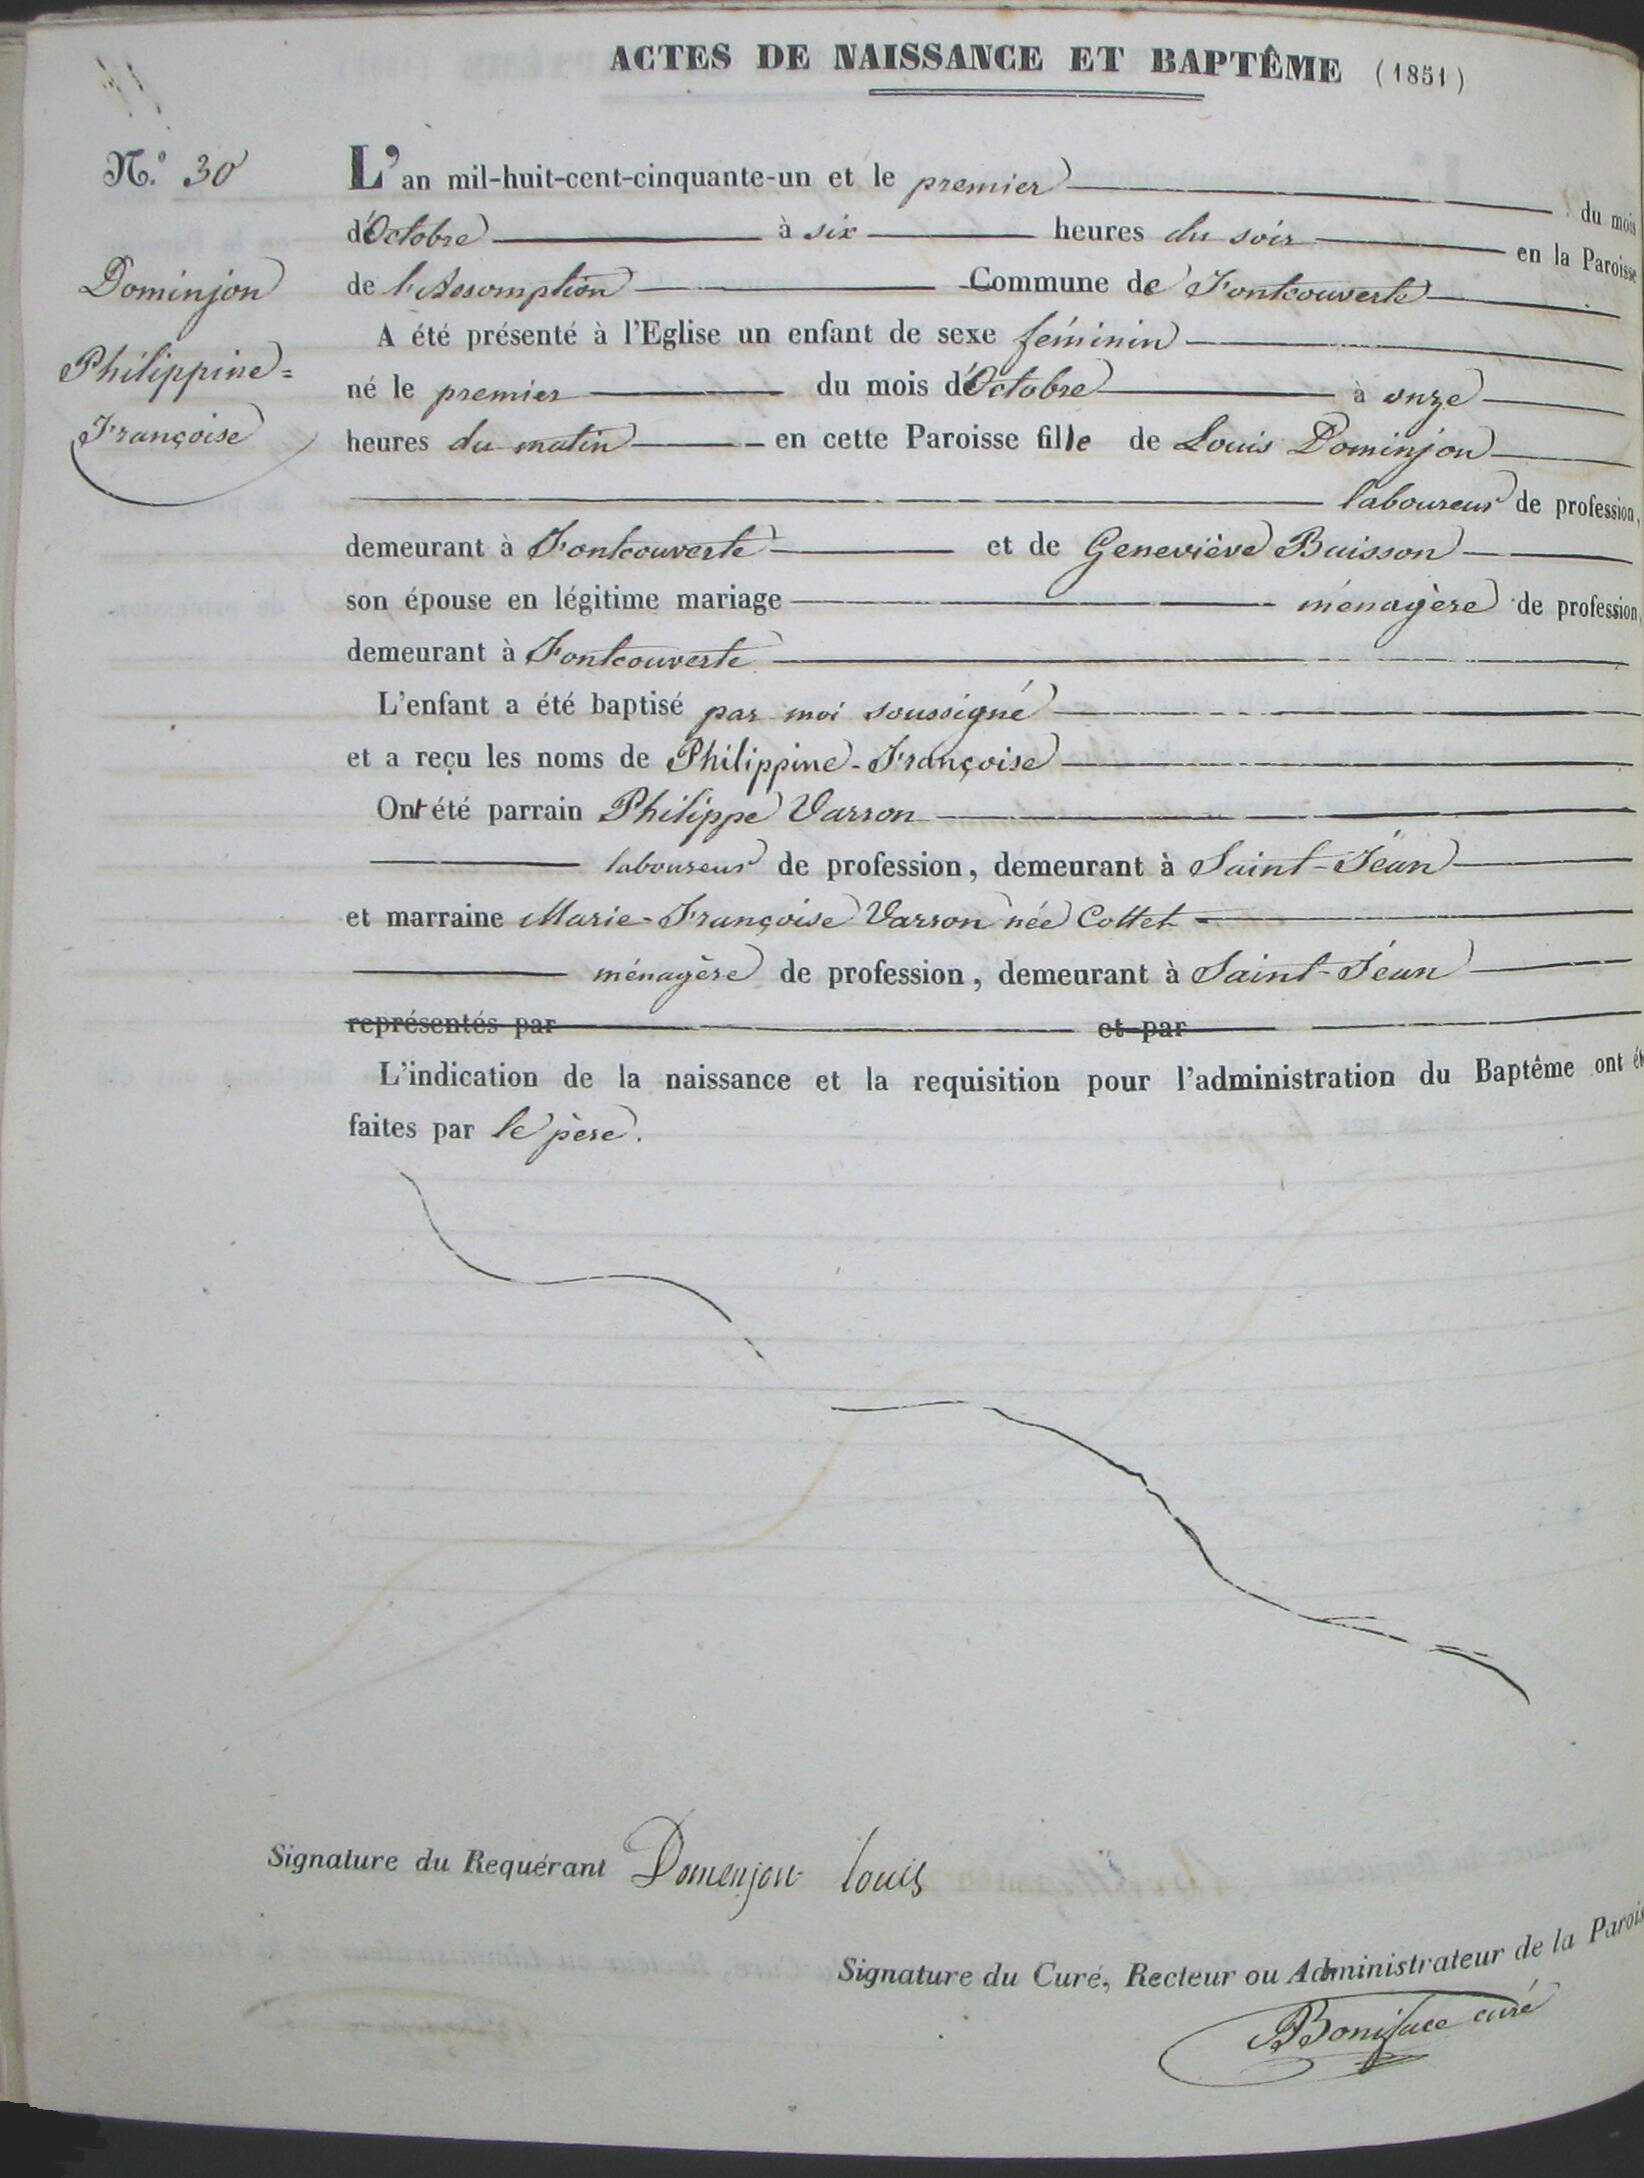 ACTES DE NAISSANCE ET BAPTÊME (1851)
N.° 30
Dominjon
Philippine=
Françoise
L'an mil-huit-cent-cinquante-un et le premier du mois
d'Octobre à six heures du soir en la Paroisse
de l'Assomption Commune de Fontcouverte
A été présenté à l'Eglise un enfant de sexe féminin
né le premier du mois d'Octobre à onze
heures du matin en cette Paroisse fille de Louis Dominjon
laboureur de profession,
demeurant à Fontcouverte et de Geneviève Buisson
son épouse en légitime mariage ménagère de profession,
demeurant à Fontcouverte
L'enfant a été baptisé par moi soussigné
et a reçu les noms de Philippine-Françoise
Ont été parrain Philippe Varron
laboureur de profession, demeurant à Saint-Jean
et marraine Marie-Françoise Varron née Collet
ménagère de profession, demeurant à Saint-Jean
représentés par et par
L'indication de la naissance et la requisition pour l'administration du Baptême ont ét
faites par le père.
Signature du Requérant Domenjon louis
Signature du Curé, Recteur ou Administrateur de la Parois
Boniface curé